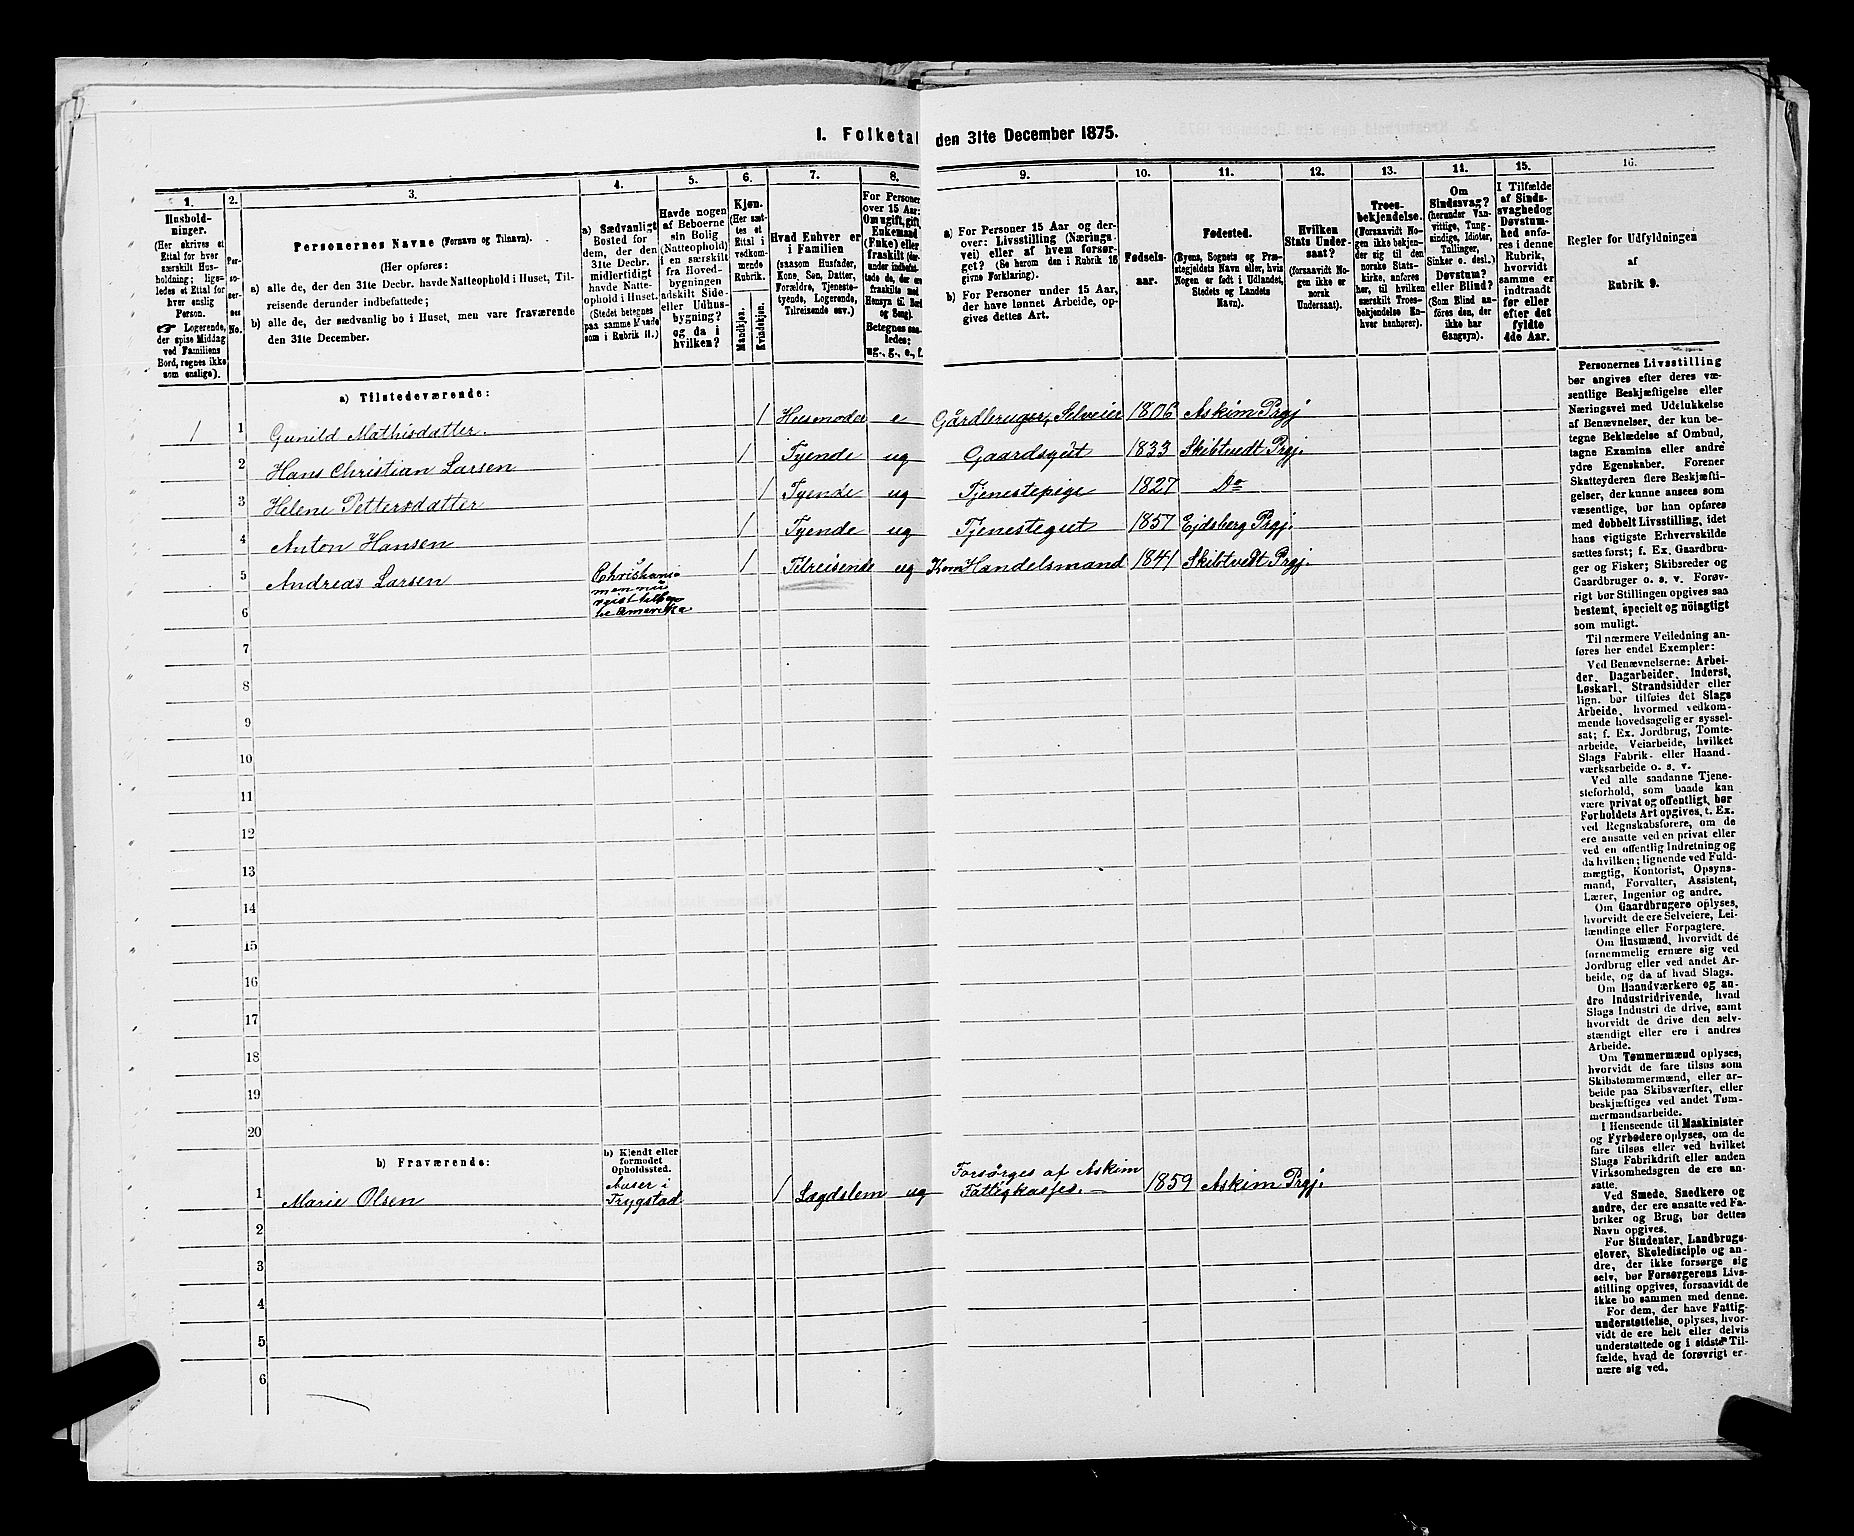 1. Folketal den 31te December 1875.
1.
Hushold-
ninger.
(Her skrives et
Ettal for hver
særskilt Hus-
holdning; lige-
ledes et Ettal for
hver enslig
Person.
☞ Logerende,
der spise Middag
ved Familiens
Bord, regnes ikke
som enslige).
2.
Per-
so-
ner-
nes
No.
3.
Personernes Navne (Fornavn og Tilnavn).
(Her opføres:
a) alle de, der den 31te Decbr. havde Natteophold i Huset, Til-
reisende derunder indbefattede;
b) alle de, der sædvanlig bo i Huset, men vare fraværende
den 31te December.
4.
a) Sædvanligt
Bosted for
dem, der den
31te Decbr.
midlertidigt
havde Natte-
ophold i Huset.
(Stedet betegnes
paa samme Maade
som i Rubrik 11.)
5.
Havde nogen
af Beboerne
sin Bolig
(Natteophold)
i en særskilt
fra Hoved-
bygningen
adskilt Side-
eller Udhus-
bygning?
og da i
hvilken?
6.
Kjøn.
(Her sæt-
tes et
Ettal i
vedkom-
mende
Rubrik.
Mandkjøn.
Kvindekjøn.
7.
Hvad Enhver er
i Familien
(saasom Husfader,
Kone, Søn, Datter,
Forældre, Tjeneste-
tyende, Logerende,
Tilreisende osv.)
8.
For Personer
over 15 Aar:
Om ugift, gift,
Enkemand
(Enke) eller
fraskilt (der-
under indbefat-
tede de, der ere
fraskilte med
Hensyn til Bord
og Seng).
Betegnes saa-
ledes:
ug., g., e., f.
9.
a) For Personer 15 Aar og der-
over: Livsstilling (Nærings-
vei) eller af hvem forsør-
get? (Se herom den i Rubrik 16
givne Forklaring).
b) For Personer under 15 Aar,
der have lønnet Arbeide, op-
gives dettes Art.
10.
Fødsels-
aar.
11.
Fødested.
(Byens, Sognets og Præ-
stegjeldets Navn eller, hvis
Nogen er født i Udlandet,
Stedets og Landets
Navn).
12.
Hvilken
Stats Under-
saat?
(forsaavidt No-
gen ikke er
norsk
Undersaat).
13.
Troes-
bekjendelse.
(Forsaavidt No-
gen ikke bekjen-
der sig til den
norske Stats-
kirke, anføres
her, til hvilken
særskilt Troes-
bekjendelse En-
hver henhører).
14.
Om
Sindssvag?
(herunder Van-
vittige, Tung-
sindige, Idioter,
Tullinger,
Sinker o. desl.)
Døvstum?
eller Blind?
(Som Blind an-
føres den, der
ikke har
Gangsyn).
15.
I Tilfælde
af Sinds-
svaghed og
Døvstum-
hed anfø-
res i denne
Rubrik,
hvorvidt
samme er
indtraadt
før eller
efter det
fyldte
4de Aar.
16.
Regler for Udfyldningen
af
Rubrik 9.
a) Tilstedeværende:
1 1 Gunild Mathisdatter. 1 Husmoder e Gårdbruger, Selveier 1806 Askim Prgj
2 Hans Christian Larsen 1 Tyende ug Gaardsgut 1833 Skibtvedt Prgj.
3 Helene Pettersdatter 1 Tyende ug Tjenestepige 1827 Do
4 Anton Hansen 1 Tyende ug Tjenestegut 1857 Ejdsberg Prgj.
5 Andreas Larsen Christiania 1 Tilreisende ug Handelsmand 1841 Skibtvedt Prgj.
men nu
reist tilbage
Amerika
6
7
8
9
10
11
12
13
14
15
16
17
18
19
20
b) Fraværende:
b) Kjendt eller
formodet
Opholdssted.
1 Marie Olsen Auser i Trygstad 1 Lægdslem ug Forsørges af Askim Fattigkasse. 1859 Askim Prgj.
2
3
4
5
6
Personernes Livsstilling
bør angives efter deres væ-
sentlige Beskjæftigelse eller
Næringsvei med Udelukkelse
af Benævnelser, der kun be-
tegne Beklædelse af Ombud,
tagne Examina eller andre
ydre Egenskaber. Forener
Skatteyderen flere Beskjæfti-
gelser, der kunne ansees som
væsentlige, bør han opføres
med dobbelt Livsstilling, idet
hans vigtigste Erhvervskilde
sættes først; f. Ex. Gaardbru-
ger og Fisker; Skibsreder og
Gaardbruger o. s. v. Forøv-
rigt bør Stillingen opgives saa
bestemt, specielt og nöiagtigt
som muligt.
Til nærmere Veiledning an-
føres her endel Exempler:
Ved Benævnelserne: Arbei-
der, Dagarbeider, Inderst,
Løskarl, Strandsidder eller
lign. bør tilføies det Slags
Arbeide, hvormed vedkom-
mende hovedsagelig er syssel-
sat; f. Ex. Jordbrug, Tomte-
arbeide, Veiarbeide, hvilket
Slags Fabrik- eller Haand-
værksarbeide o. s. v.
Ved alle saadanne Tjene-
steforhold, som baade kan
være privat og offentligt, bør
Forholdets Art opgives, t. Ex.
ved Regnskabsførere, om de
ere ansatte ved en privat eller
ved en offentlig Indretning og
da hvilken; lignende ved Fuld-
mægtig, Kontorist, Opsyns-
mand, Forvalter, Assistent,
Lærer, Ingeniør og andre.
Om Gaardbrugere oplyses,
hvorvidt de ere Selveiere, Lei-
lændinge eller Forpagtere.
Om Husmænd, hvorvidt de
fornemmelig ernære sig ved
Jordbrug eller ved andet Ar-
beide, og da af hvad Slags.
Om Haandværkere og an-
dre Industridrivende, hvad
Slags Industri de drive, samt
hvorvidt de drive den selv-
stændigt eller ere i andres
Arbeide.
Om Tømmermænd oplyses,
hvorvidt de fare tilsøs som
Skibstømmermænd, eller ar-
beide paa Skibsværfter, eller
beskjæftiges ved andet Tøm-
mermandsarbeide.
I Henseende til Maskinister
og Fyrbødere oplyses, om de
fare tilsøs eller ved hvilket
Slags Fabrikdrift eller anden
Virksomhedsgren de ere an-
satte.
Ved Smede, Snedkere og
andre, der ere ansatte ved Fa-
briker og Brug, bør dettes
Navn opgives.
For Studenter, Landbrugs-
elever, Skoledisciple og an-
dre, der ikke forsørge sig
selv, bør Forsørgerens Livs-
stilling opgives, forsaavidt de
ikke bo sammen med denne.
For dem, der have Fattig-
understøttelse, oplyses, hvor-
vidt de ere helt eller delvis
understøttede og i sidste Til-
fælde, hvad de forøvrigt er-
nære sig ved.